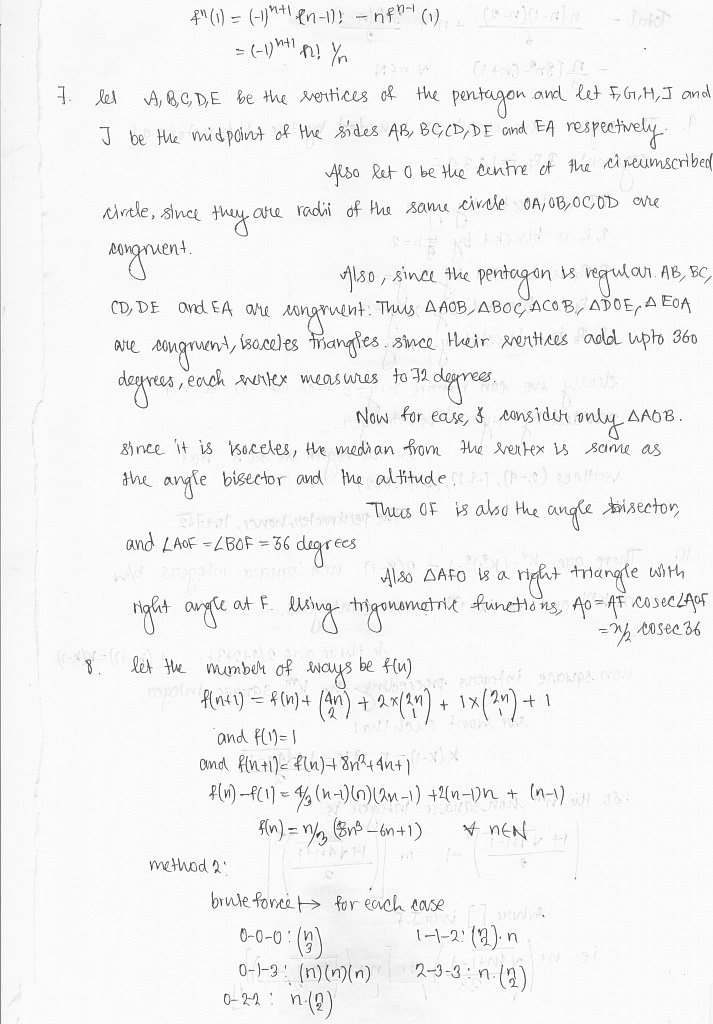 fⁿ(1) = (-1)ⁿ⁺¹ (n-1)! - nfⁿ⁻¹ (1)
= (-1)ⁿ⁺¹ n! 1/n
7. let A,B,C,D,E be the vertices of the pentagon and let F,G,H,I and
J be the midpoint of the sides AB, BC, CD, DE and EA respectively.
Also let O be the centre of the circumscribed
circle, since they are radii of the same circle OA, OB, OC, OD are
congruent.
Also, since the pentagon is regular. AB, BC,
CD, DE and EA are congruent. Thus ΔAOB, ΔBOC, ΔCOB, ΔDOE, ΔEOA
are congruent, isoceles triangles. since their vertices add upto 360
degrees, each vertex measures to 72 degrees.
Now for ease, I consider only ΔAOB.
since it is isoceles, the median from the vertex is same as
the angle bisector and the altitude.
Thus OF is also the angle bisector,
and ∠AOF = ∠BOF = 36 degrees
Also ΔAFO is a right triangle with
right angle at F. Using trigonometric functions, AO = AF cosec∠AOF
= x/2 cosec36
8. let the number of ways be f(n)
f(n+1) = f(n) + (4n 2) + 2×(2n 1) + 1×(2n 1) + 1
and f(1)=1
and f(n+1) = f(n) + 8n²+4n+1
f(n) - f(1) = 4/3 (n-1)(n)(2n-1) + 2(n-1)n + (n-1)
f(n) = n/3 (8n³ - 6n+1) ∀ n∈N
method 2:
brute force ↦ for each case
0-0-0 : (n 3) 1-1-2: (n 2).n
0-1-3 : (n)(n)(n) 2-3-3 : n.(n 2)
0-2-2 : n.(n 2)